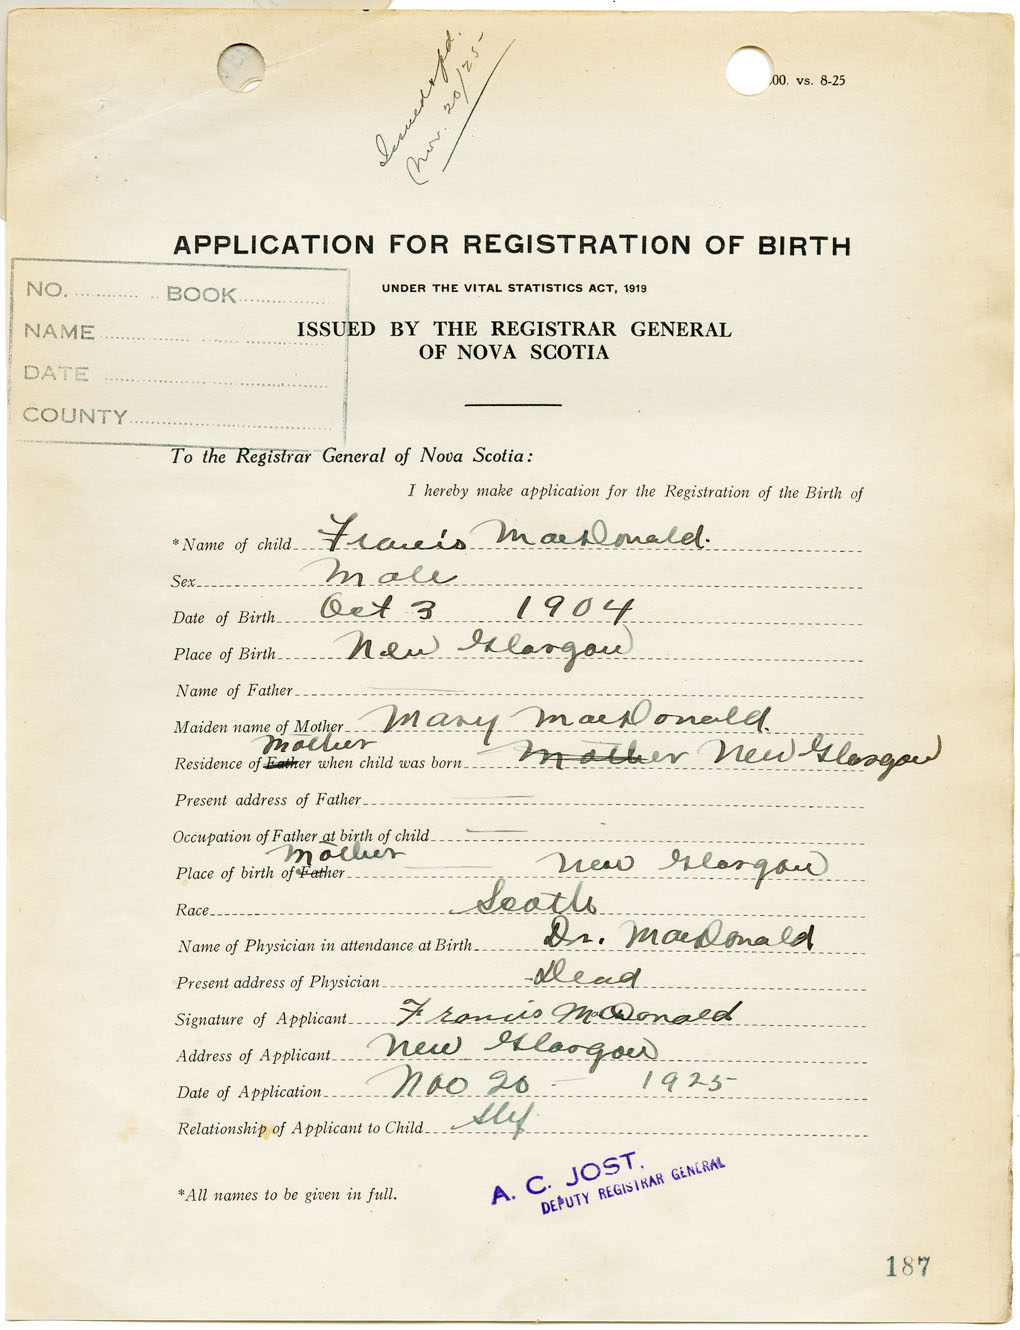 Issued & pd.
Nov. 20/25
00. vs. 8-25
APPLICATION FOR REGISTRATION OF BIRTH
UNDER THE VITAL STATISTICS ACT, 1919
ISSUED BY THE REGISTRAR GENERAL
OF NOVA SCOTIA
NO. BOOK
NAME
DATE
COUNTY
To the Registrar General of Nova Scotia:
I hereby make application for the Registration of the Birth of
*Name of child Francis MacDonald.
Sex Male
Date of Birth Oct 3 1904
Place of Birth New Glasgow
Name of Father
Maiden name of Mother Mary MacDonald.
Mother
Residence of Father when child was born Mother New Glasgow
Present address of Father
Occupation of Father at birth of child
Mother
Place of birth of Father New Glasgow
Race Scotch
Name of Physician in attendance at Birth Dr. MacDonald
Present address of Physician Dead
Signature of Applicant Francis McDonald
Address of Applicant New Glasgow
Date of Application Nov 20 - 1925
Relationship of Applicant to Child Slef
*All names to be given in full.
A. C. JOST,
DEPUTY REGISTRAR GENERAL
187